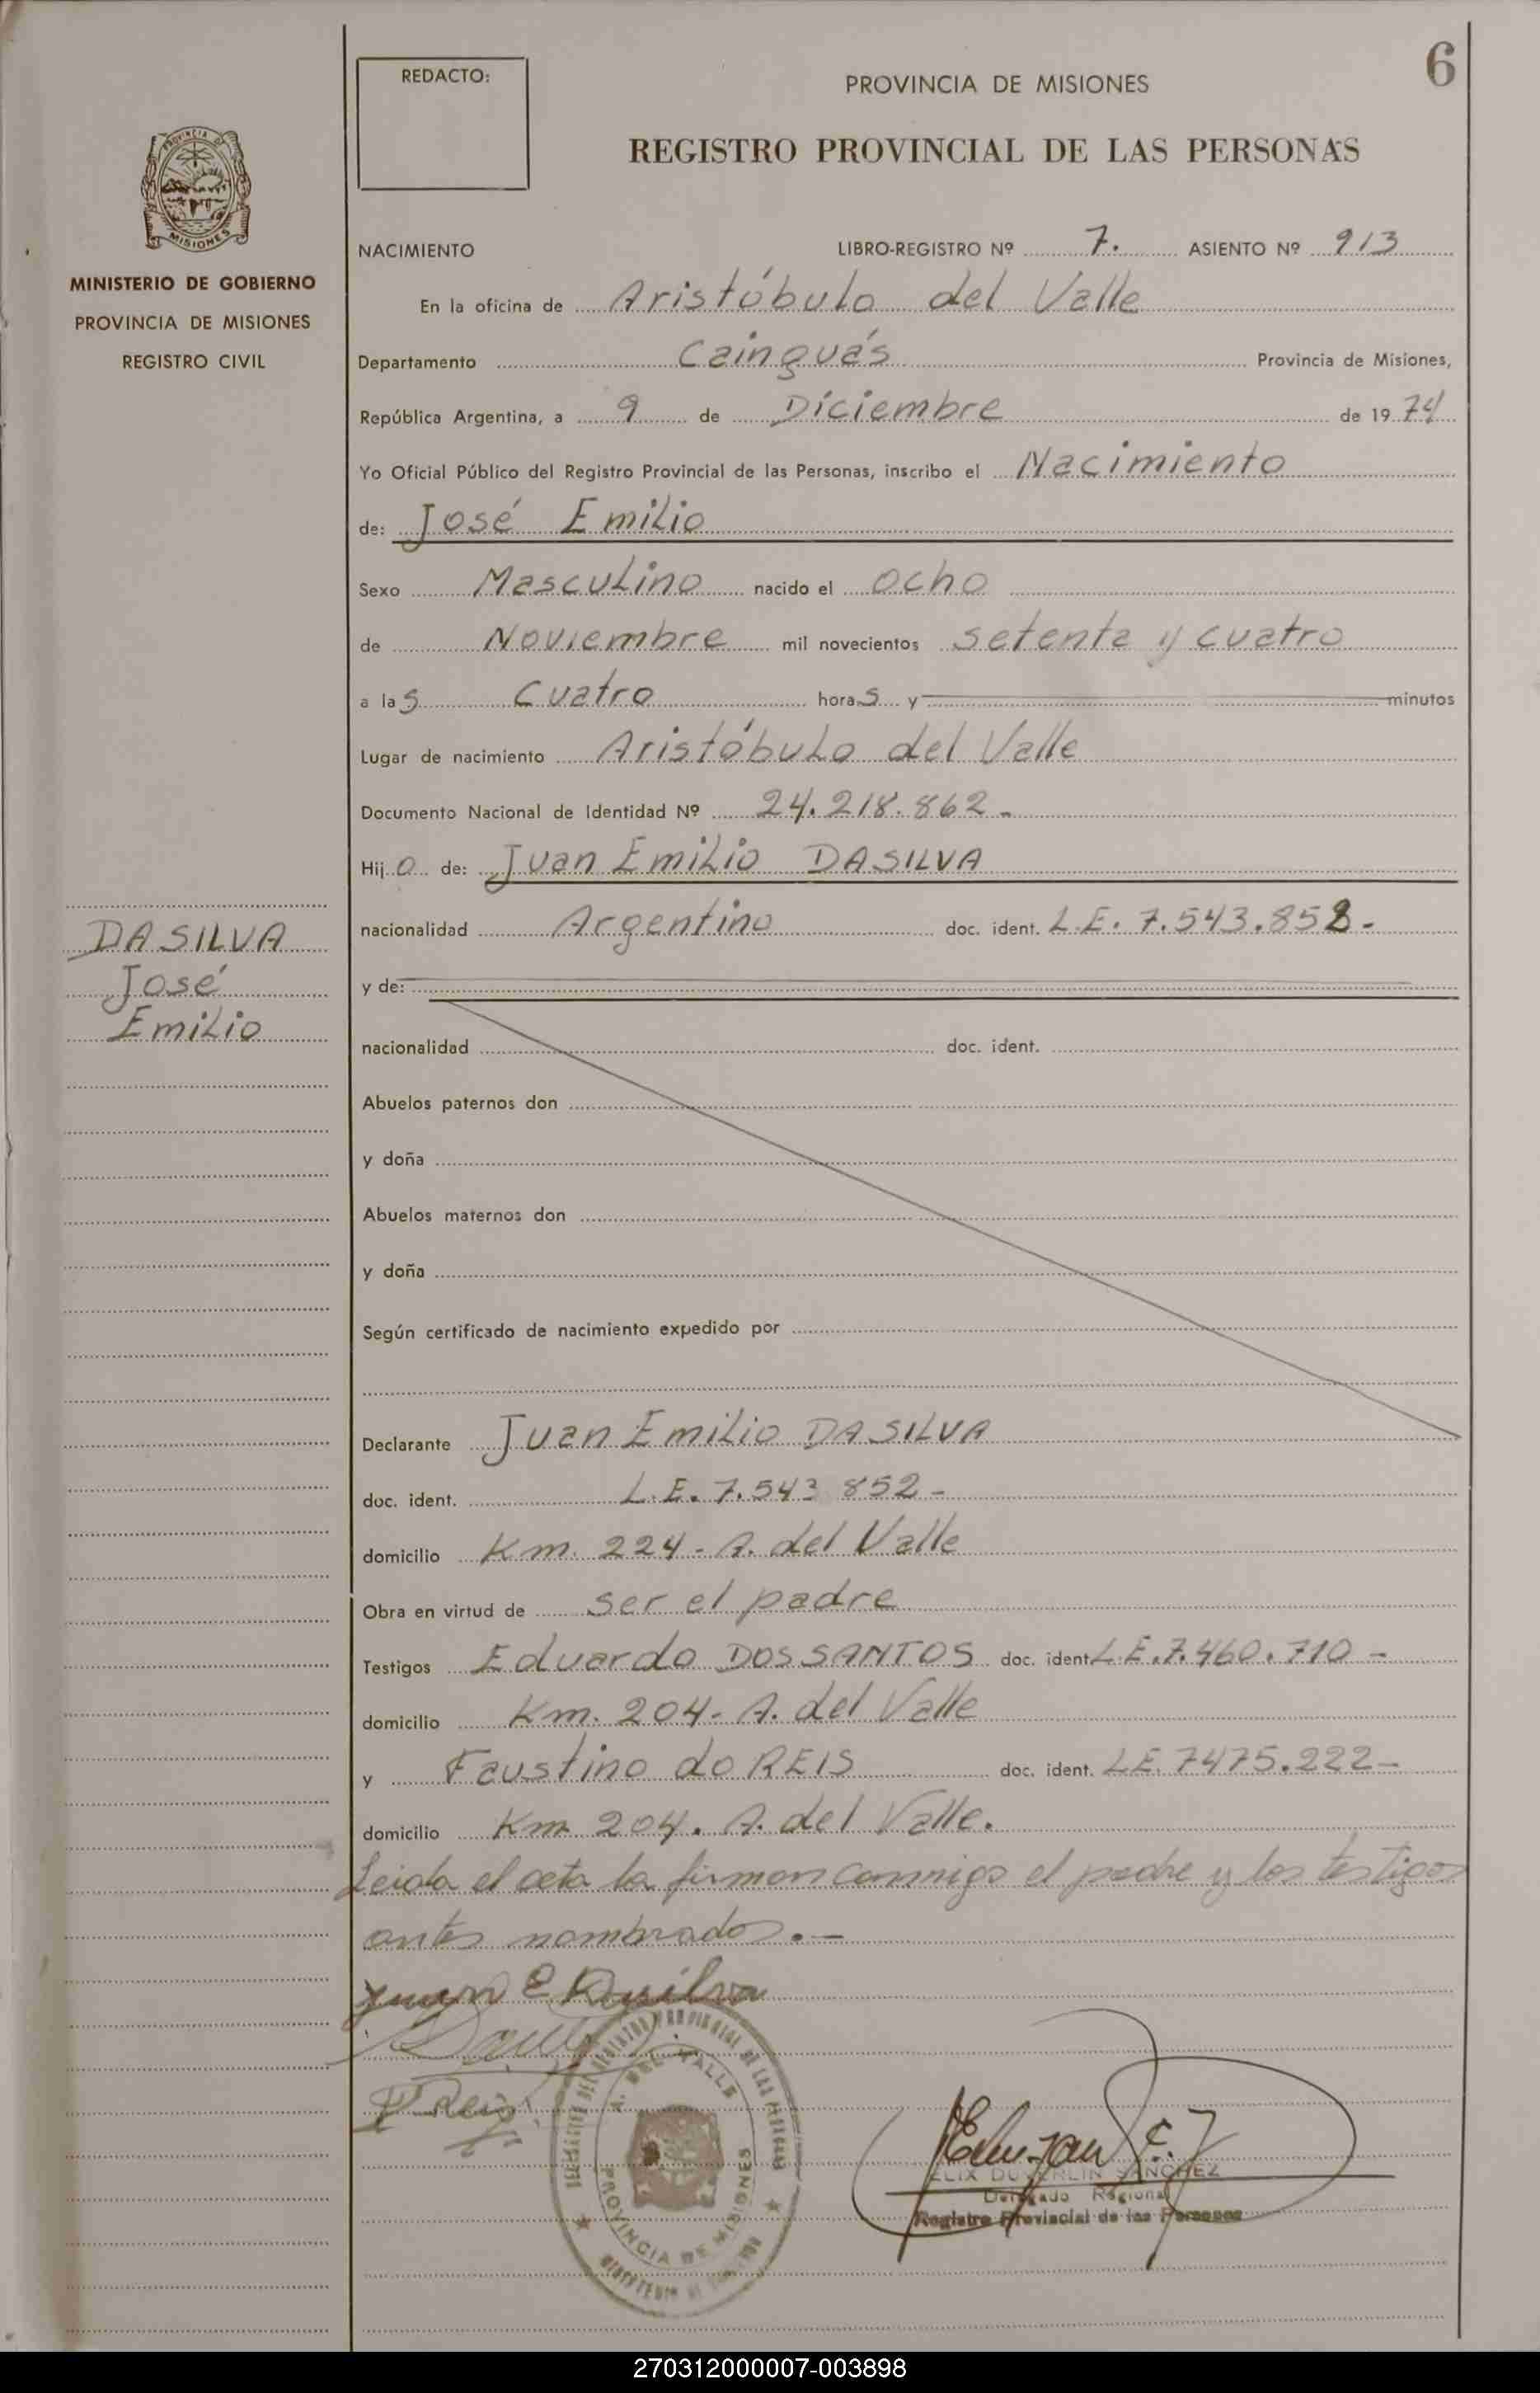 6
REDACTO:
PROVINCIA DE MISIONES
REGISTRO PROVINCIAL DE LAS PERSONAS
MISIONES
MINISTERIO DE GOBIERNO
PROVINCIA DE MISIONES
REGISTRO CIVIL
NACIMIENTO LIBRO-REGISTRO Nº 7. ASIENTO Nº 913
En la oficina de Aristóbulo del Valle
Departamento Cainguás Provincia de Misiones,
República Argentina, a 9 de Diciembre de 1974
Yo Oficial Público del Registro Provincial de las Personas, inscribo el Nacimiento
de: José Emilio
Sexo Masculino nacido el ocho
de Noviembre mil novecientos setenta y cuatro
a las Cuatro horas y minutos
Lugar de nacimiento Aristóbulo del Valle
Documento Nacional de Identidad Nº 24.218.862-
Hijo de: Juan Emilio DASILVA
nacionalidad Argentino doc. ident. L.E. 7.543.852-
DASILVA
José
Emilio
y de:
nacionalidad doc. ident.
Abuelos paternos don
y doña
Abuelos maternos don
y doña
Según certificado de nacimiento expedido por
Declarante Juan Emilio DASILVA
doc. ident. L.E. 7.543 852-
domicilio Km. 224- A. del Valle
Obra en virtud de ser el padre
Testigos Eduardo DOS SANTOS doc. ident L.E.7.460.710-
domicilio Km. 204- A. del Valle
y Faustino do REIS doc. ident. LE. 7475.222-
domicilio Km 204. A. del Valle.
Leida el acta la firman conmigo el padre y los testigos
antes nombrados.-
Juan E Dasilva
F Reis
A. DEL VALLE
PROVINCIA DE MISIONES
SANCHEZ
Delegado Regional
Registro Provincial de las Personas
270312000007-003898